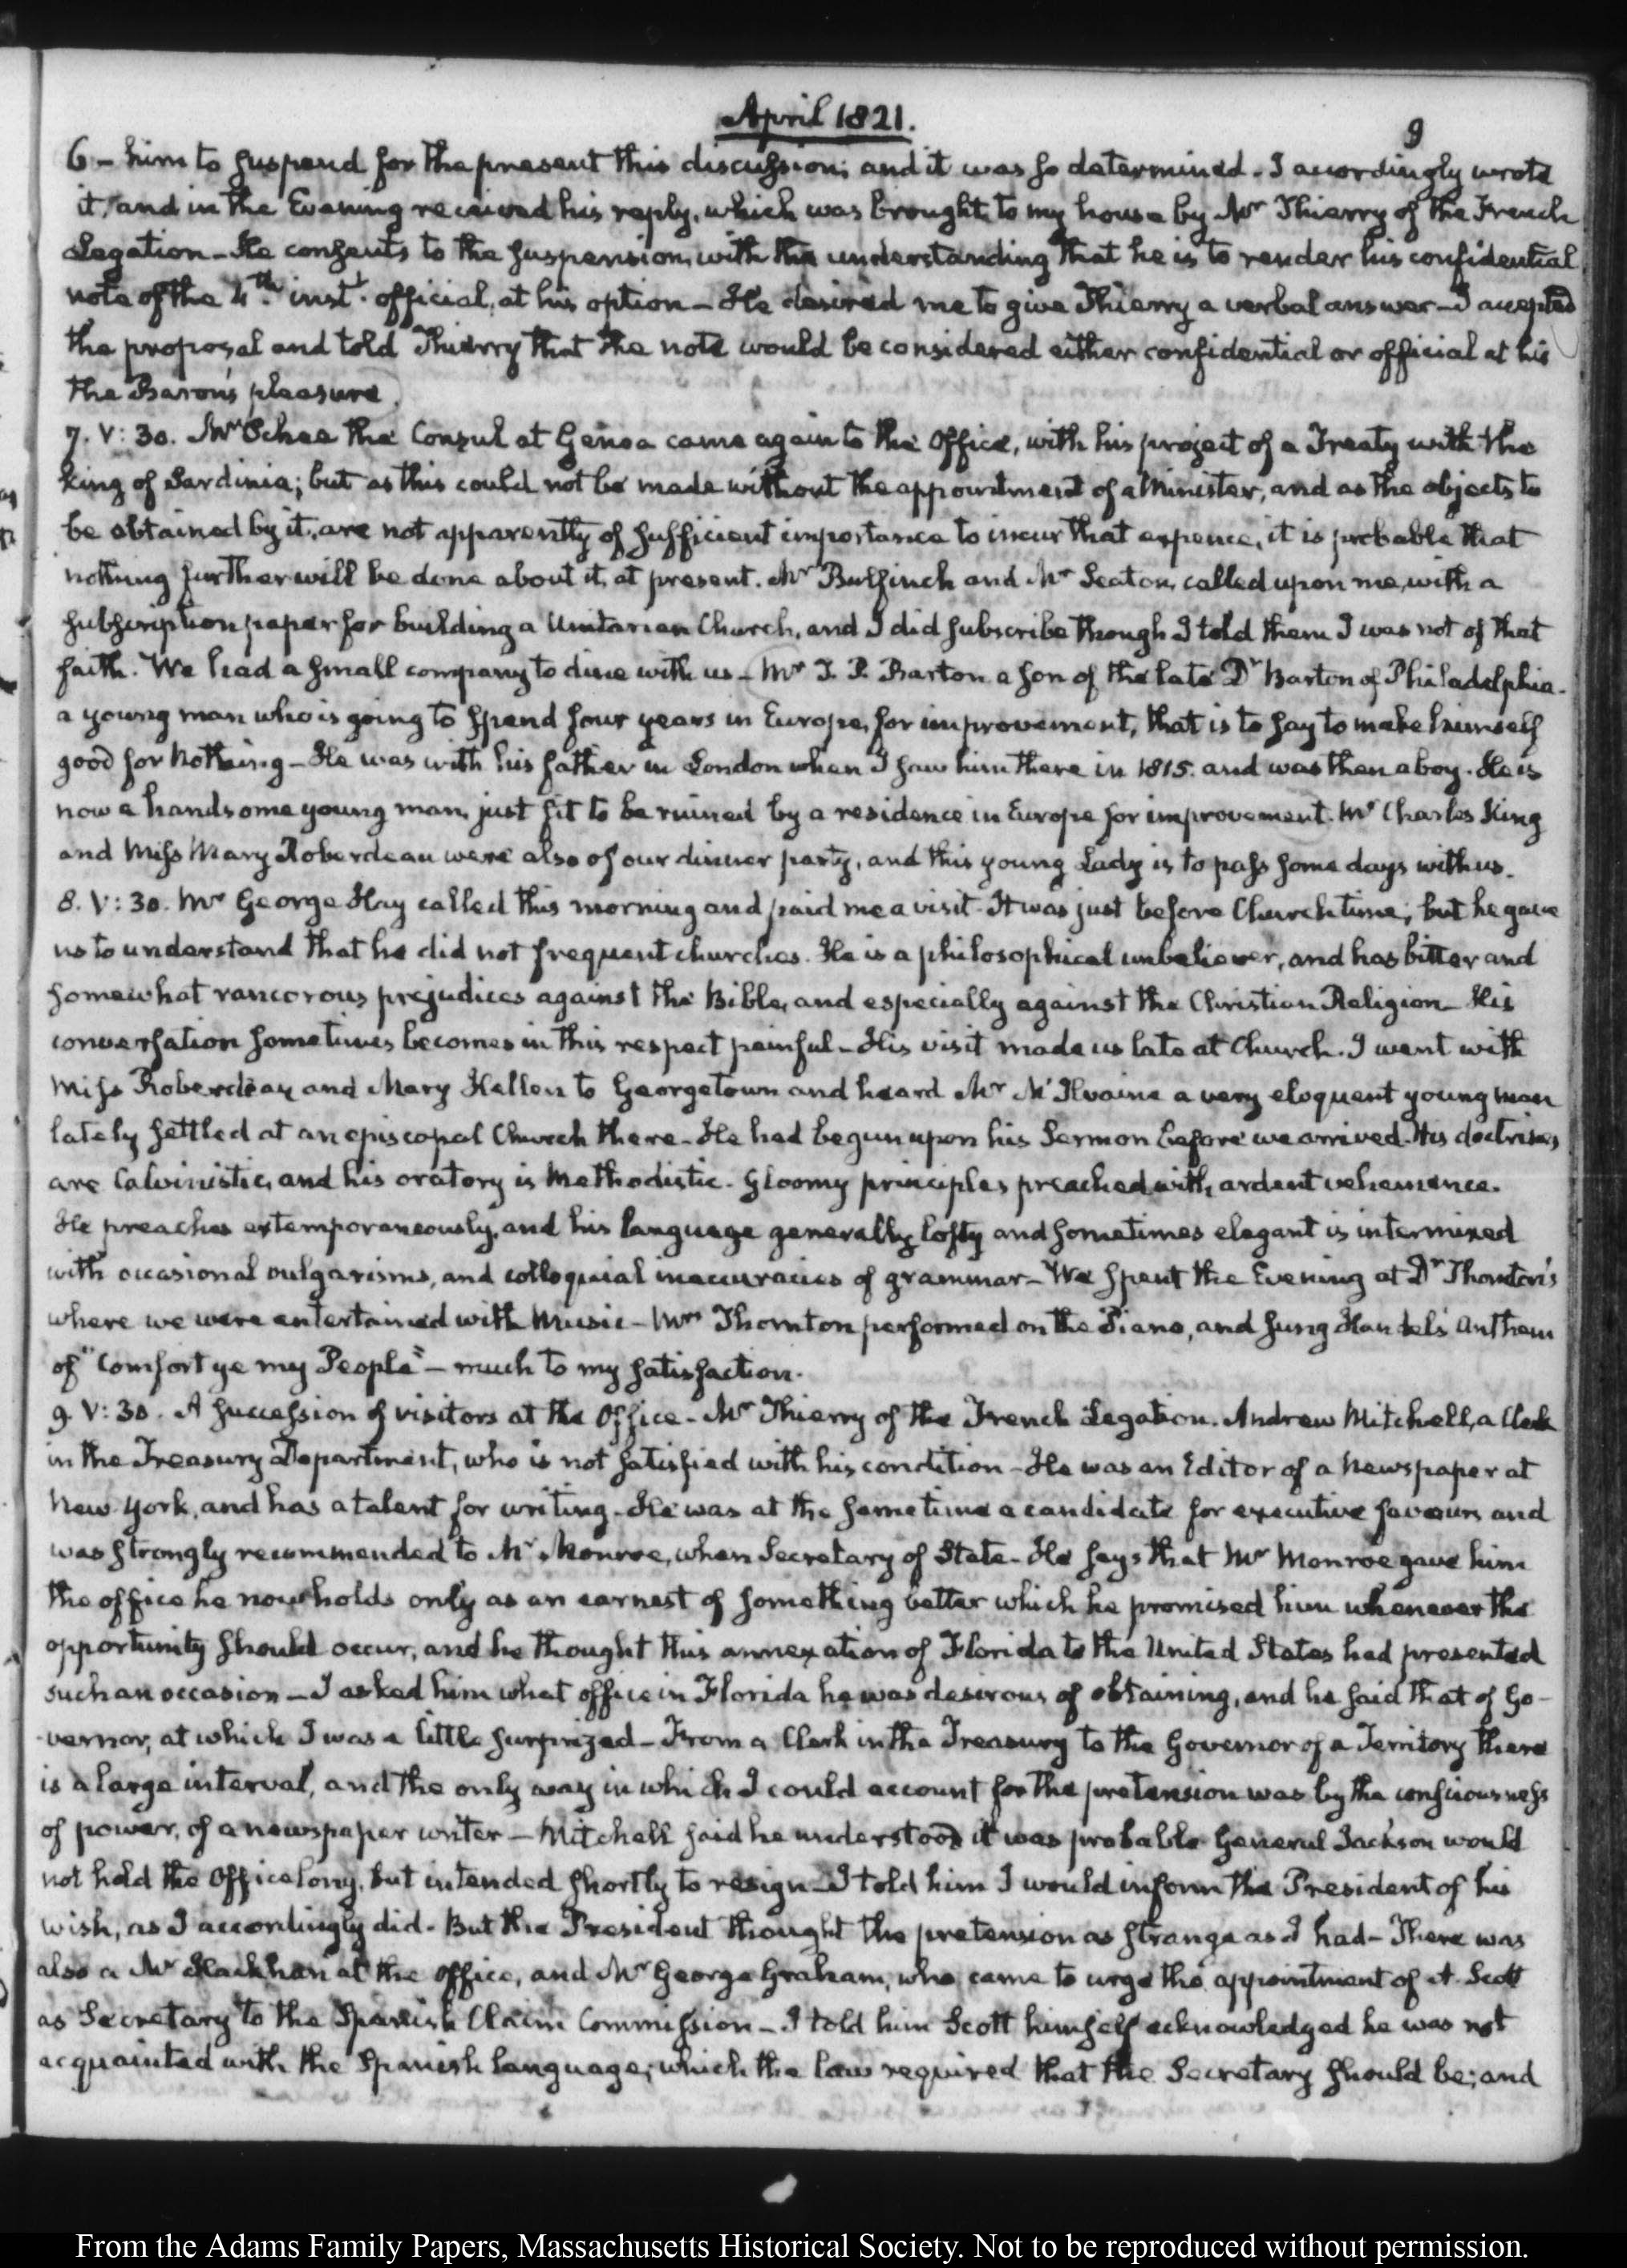 April 1821.
9
6 – him to suspend for the present this discussion; and it was so determined. I accordingly wrote
it, and in the Evening received his reply, which was brought to my house by Mr Thierry of the French
Legation – He consents to the suspension, with the understanding that he is to render his confidential
note of the 4th inst. official, at his option – He desired me to give Thierry a verbal answer – I accepted
the proposal and told Thierry that the note would be considered either confidential or official at his
the Baron's pleasure.
7. V: 30. Mr the Consul at Genoa came again to the Office, with his project of a Treaty with the
king of Sardinia; but as this could not be made without the appointment of a Minister, and as the objects to
be obtained by it, are not apparently of sufficient importance to incur that expence, it is probable that
nothing further will be done about it, at present. Mr Bulfinch and Mr Seaton, called upon me, with a
subscription paper for building a Unitarian Church, and I did subscribe though I told them I was not of that
faith. We had a small company to dine with us – Mr T. P. Barton a son of the late Dr Barton of Philadelphia.
a young man who is going to spend four years in Europe, for improvement, that is to say to make himself
good for nothing – He was with his father in London when I saw him there in 1815. and was then a boy. He is
now a handsome young man, just fit to be ruined by a residence in Europe for improvement. Mr Charles King
and Miss Mary Roberdeau were also of our dinner party, and this young Lady is to pass some days with us.
8. V: 30. Mr George Hay called this morning and paid me a visit. It was just before Church time; but he gave
us to understand that he did not frequent churches. He is a philosophical unbeliever, and has bitter and
somewhat rancorous prejudices against the Bible, and especially against the Christian Religion – His
conversation sometimes becomes in this respect painful – His visit made us late at Church. I went with
Miss Roberdeau and Mary Hellen to Georgetown and heard Mr McIlvaine a very eloquent young man
lately settled at an episcopal Church there – He had begun upon his Sermon before we arrived. His doctrines
are Calvinistic, and his oratory is Methodistic. Gloomy principles preached with ardent vehemence.
He preaches extemporaneously, and his language generally lofty and sometimes elegant is intermixed
with occasional vulgarisms, and colloquial inaccuracies of grammar – We spent the Evening at Dr Thornton's
where we were entertained with Music – Mrs Thornton performed on the Piano, and sung Handel's Anthem
of "Comfort ye my People" – much to my satisfaction.
9. V: 30. A succession of visitors at the Office – Mr Thierry of the French Legation. Andrew Mitchell, a Clerk
in the Treasury Department, who is not satisfied with his condition – He was an Editor of a Newspaper at
New York, and has a talent for writing. He was at the same time a candidate for executive favour, and
was strongly recommended to Mr Monroe, when Secretary of State – He says that Mr Monroe gave him
the office he now holds only as an earnest of something better which he promised him whenever the
opportunity should occur, and he thought this annexation of Florida to the United States had presented
such an occasion – I asked him what office in Florida he was desirous of obtaining, and he said that of Go-
vernor, at which I was a little surprized – From a Clerk in the Treasury to the Governor of a Territory there
is a large interval, and the only way in which I could account for the pretension was by the consciousness
of power, of a newspaper writer – Mitchell said he understood it was probable General Jackson would
not hold the Office long, but intended shortly to resign – I told him I would inform the President of his
wish, as I accordingly did. But the President thought the pretension as strange as I had – There was
also a Mr at the Office, and Mr George Graham, who came to urge the appointment of A. Scott
as Secretary to the Spanish Claim Commission – I told him Scott himself acknowledged he was not
acquainted with the Spanish language; which the law required that the Secretary should be; and
From the Adams Family Papers, Massachusetts Historical Society. Not to be reproduced without permission.